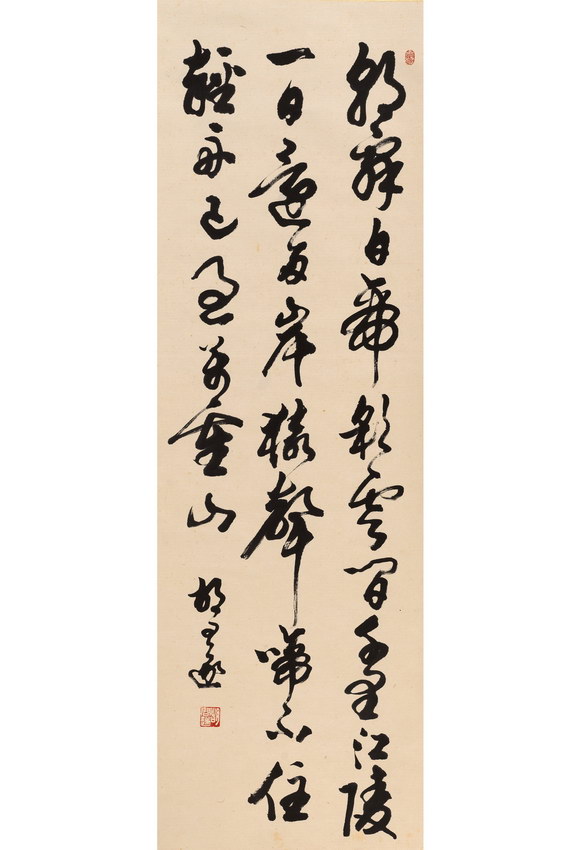 朝辭白帝彩雲間千里江陵
一日還兩岸猿聲啼不住
輕舟已過萬重山
胡問遂